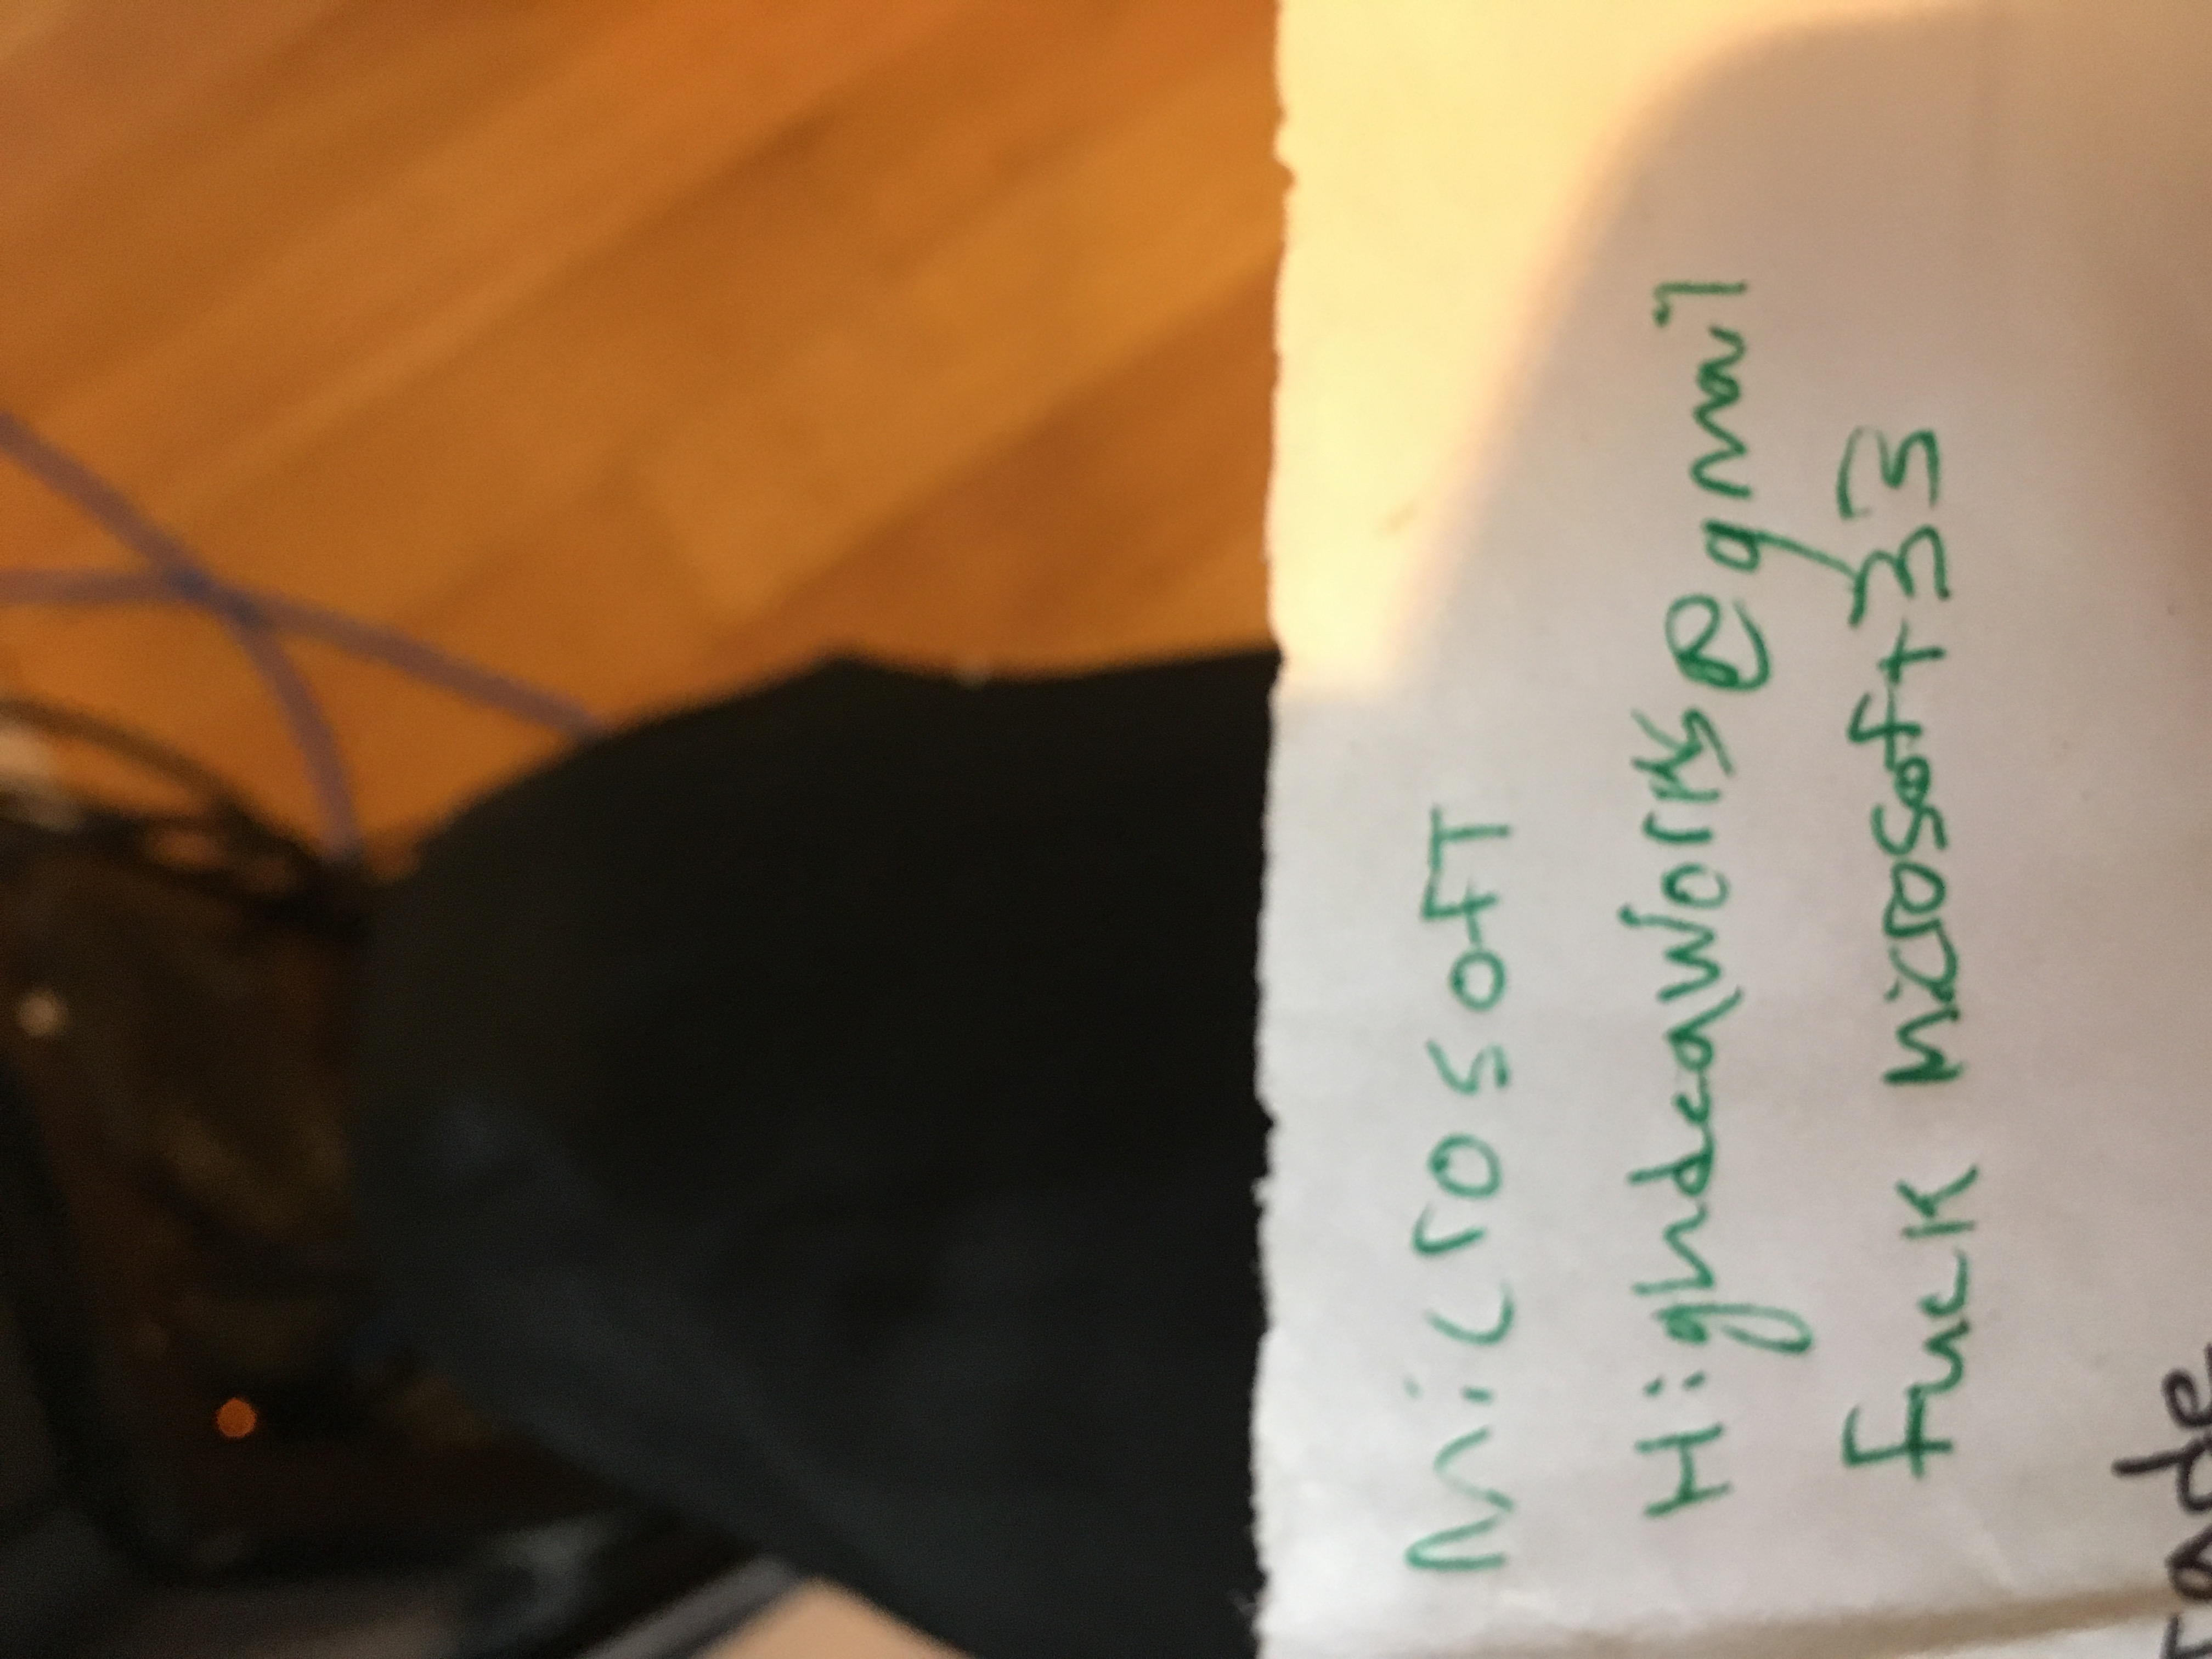 Microsoft
HighdeaWorks@gmail
Fuck Microsoft33
rade